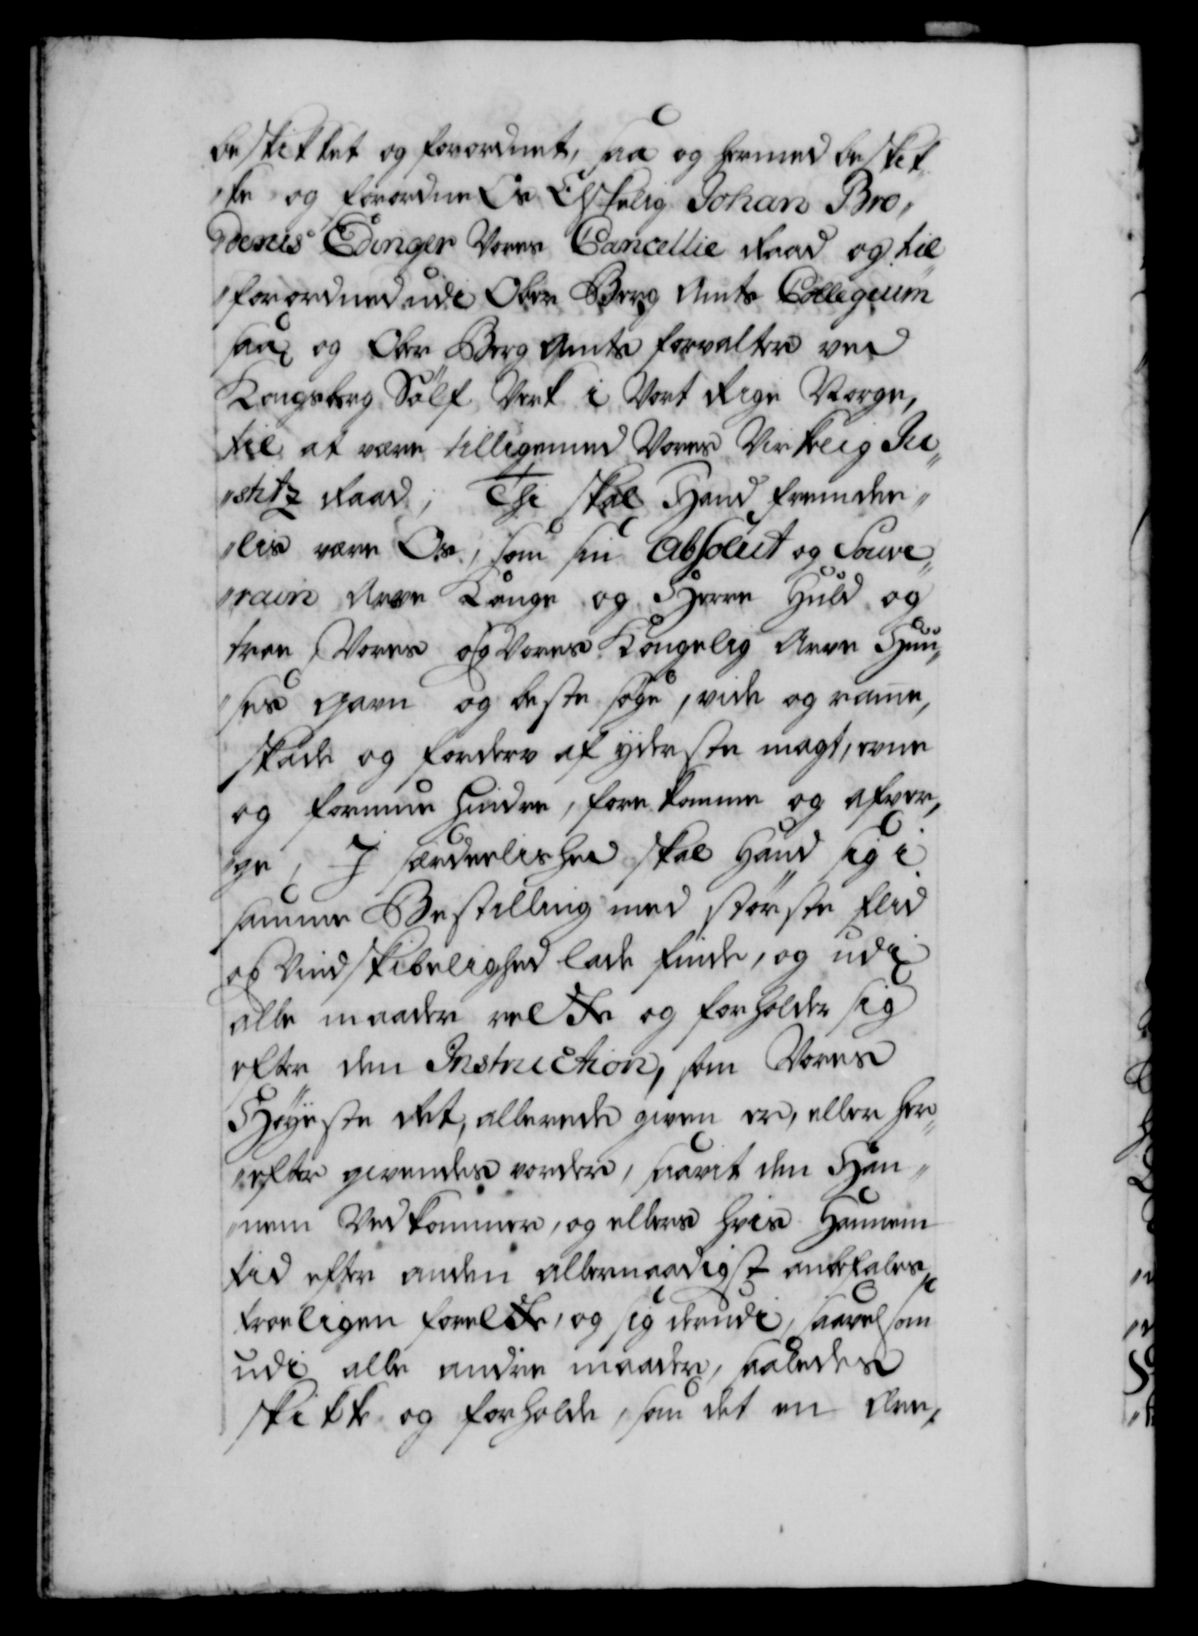 beskikket og forordnet, saa og hermed beskik„
„ke og forordne Os Elskelig Johan Bro„
„denis Edinger Vores Cancellie Raad og til„
„forordned udi Ober Berg Amts Collegium
saa og Ober Berg Amts forvalter ved
Kongsberg Sölf Verk i Vort Rige Norge,
til at være tilligemed Vores Virkelig Ju„
„stitz Raad; Thi skal Hand fremdee„
„les være Os, som sin Absolut og Souve„
„rain Arve Konge og Herre Huld og
troe, Vores og Vores Kongelig Arve Huu„
„ses Gavn og beste søge, vide og rame,
skade og forderv af yderste magt, evne
og formue hindre, forekomme og afver„
„ge, J særdeelished skal Hand sig i
samme Bestilling med største flid
og Vindskibelighed lade finde, og udi
alle maader rette og forholder sig
efter den Instruction, som Vores
Høyeste Ret, allerede given er, eller her„
„efter givendes vorder, saavit den Han„
„nem Vedkommer, og ellers hvis Hannem
tid efter anden allernaadigst anbefales,
troeligen forrette, og sig derudi, saavelsom
udi alle andre maader, saaledes
skikke og forholde, som det en ær„